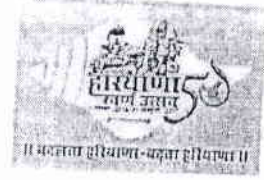 हरियाणा 50
स्वर्ण उत्सव
॥ बदलता हरियाणा-बढ़ता हरियाणा ॥